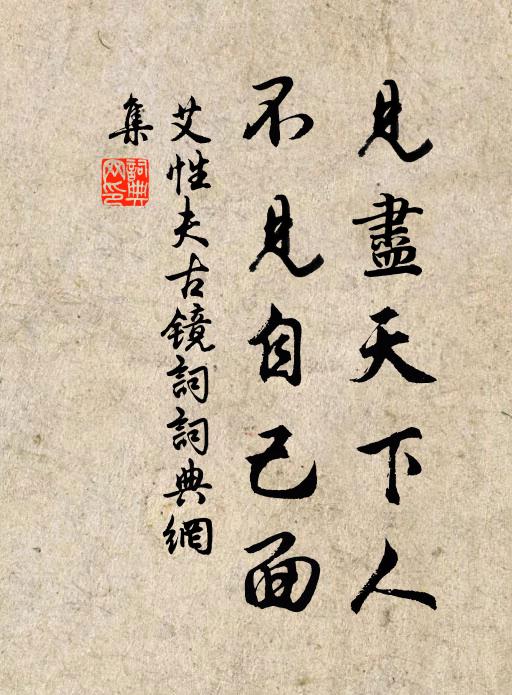 見盡天下人
不見自己面
艾性夫古镜詞詞典網
集
詞典
網印